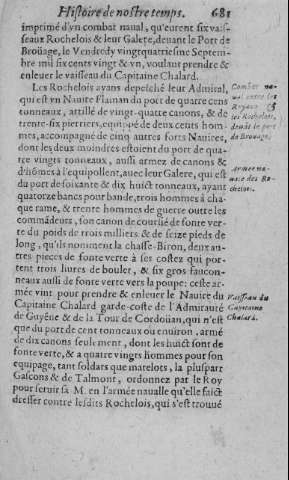 Histoire de nostre temps. 681
imprimé d'vn combat naual, qu'eurent six vais-
seaux Rochelois & leur Galere, deuant le Port de
Broüage, le Vendredy vingtquatriesme Septem-
bre mil six cents vingt & vn, voulant prendre &
enleuer le vaisseau du Capitaine Chalard.
Les Rochelois ayans depesché leur Admiral,
qui est vn Nauire Flaman du port de quatre cens
tonneaux, artillé de vingt-quatre canons, & de
trente-six pierriers, equippé de deux cents hom-
mes, accompagné de cinq autres forts Nauires,
dont les deux moindres estoient du port de qua-
tre vingts tonneaux, aussi armez de canons &
d'hômes à l'equipollent, auec leur Galere, qui est
du port de soixante & dix huict tonneaux, ayant
quatorze bancs pour bande, trois hommes à cha-
que rame, & trente hommes de guerre outre les
commādeurs, son canon de coursié de fonte ver-
te du poids de trois milliers & de seize pieds de
long, qu'ils nomment la chasse-Biron, deux au-
tres pieces de fonte verte à ses costez qui por-
tent trois liures de boulet, & six gros faucon-
neaux aussi de fonte verte vers la pouppe: ceste ar-
mée vint pour prendre & enleuer le Nauire du
Capitaine Chalard garde-coste de l'Admirauté
de Guyéne & de la Tour de Cordoüan, qui n'est
que du port de cent tonneaux ou enuiron, armé
de dix canons seulement, dont les huict sont de
fonte verte, & a quatre vingts hommes pour son
equipage, tant soldars que matelots, la pluspart
Gascons & de Talmont, ordonnez par le Roy
pour seruir sa M. en l'armée naualle qu'elle faict
dresser contre lesdits Rochelois, qui s'est trouué
Combat na-
ual entre les
Royaux &
les Rochelois,
deuāt le port
de Broüage.
Armée na-
uale des Ro-
chelois.
Vaisseau du
Capitaine
Chalard.